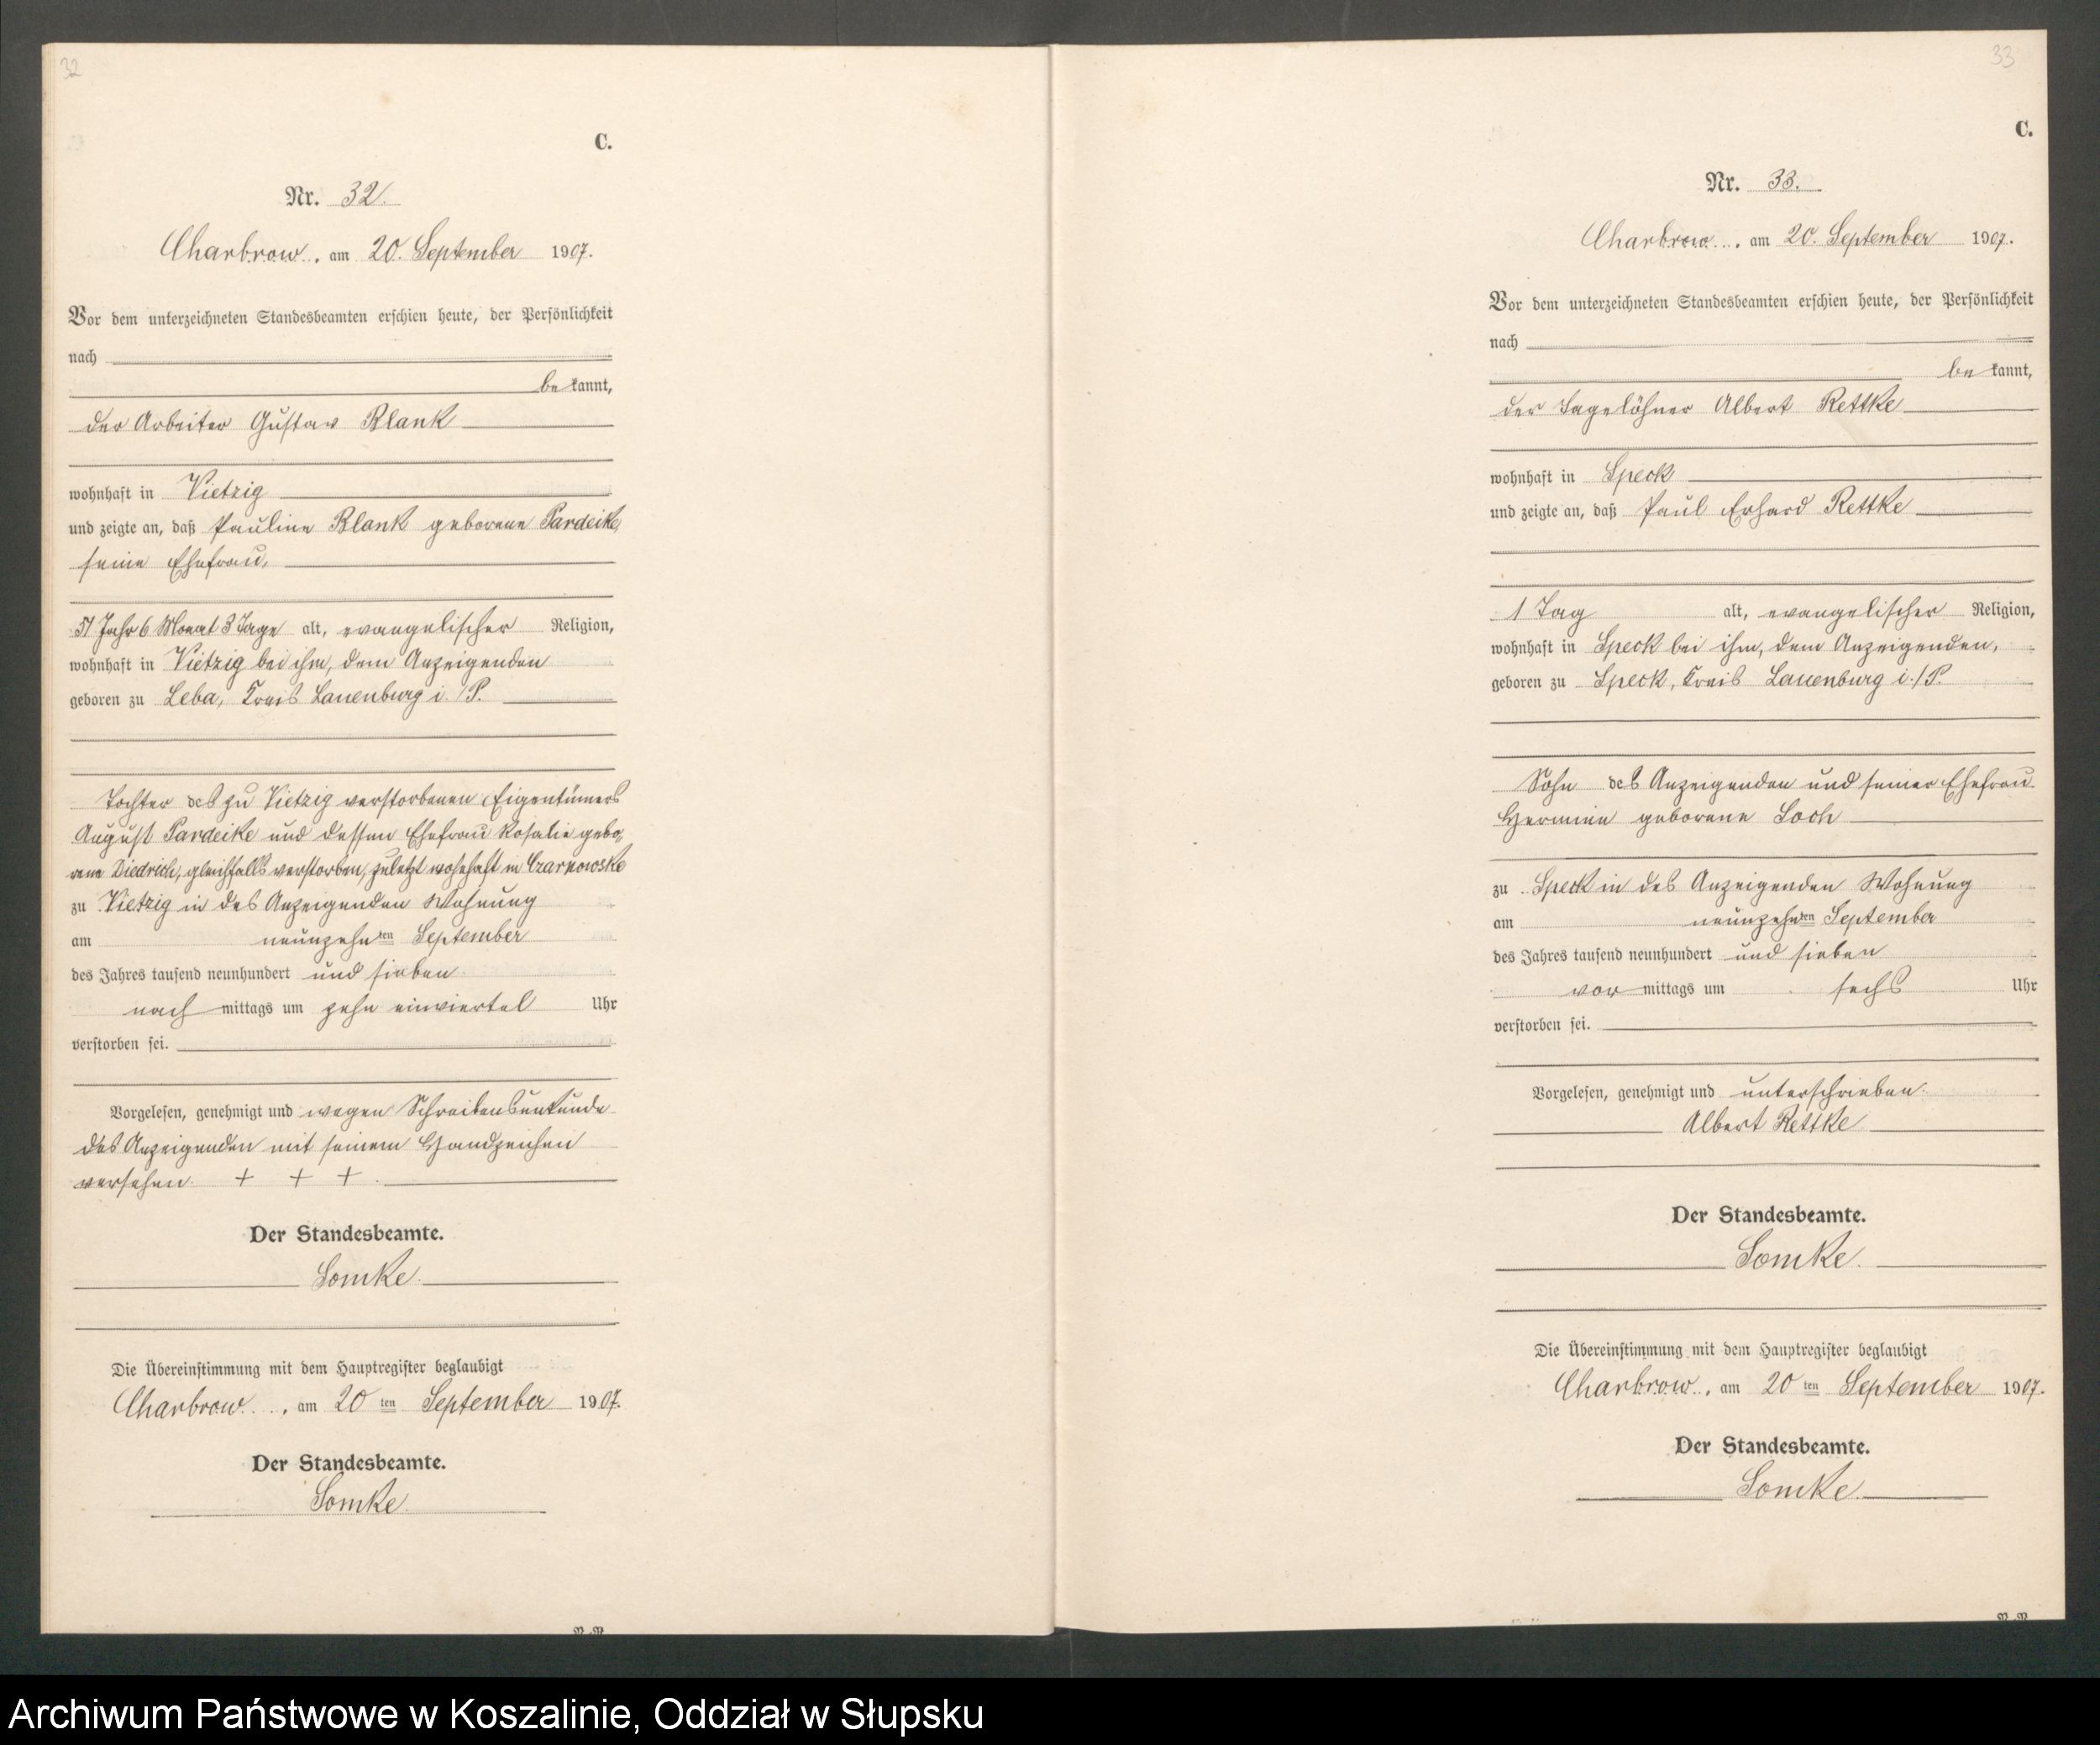 32
C.
Nr. 32.
Charbrow, am 20. September 1907.
Vor dem unterzeichneten Standesbeamten erschien heute, der Persönlichkeit
nach
be kannt,
der Arbeiter Gustav Blank
wohnhaft in Vietzig
und zeigte an, daß Pauline Blank geborene Pardeike,
seine Ehefrau,
Jahr 6 Monat 3 Tage alt, evangelischer Religion,
wohnhaft in Vietzig bei ihm, dem Anzeigenden
geboren zu Leba, Kreis Lauenburg i./P.
Tochter des zu Vietzig verstorbenen Eigentümers
August Pardeike und dessen Ehefrau Rosalie gebo,
rene Diedrich, gleichfalls verstorben, zuletzt wohnhaft in Czarnowske
zu Vietzig in des Anzeigenden Wohnung
am neunzehnten September
des Jahres tausend neunhundert und sieben
nach mittags um zehn einviertel Uhr
verstorben sei.
Vorgelesen, genehmigt und wegen Schreibensunkunde
des Anzeigenden mit seinem Handzeichen
versehen. + + +
Der Standesbeamte.
Somke.
Die Übereinstimmung mit dem Hauptregister beglaubigt
Charbrow, am 20 ten September 1907.
Der Standesbeamte.
Somke.
33
C.
Nr. 33.
Charbrow, am 20. September 1907.
Vor dem unterzeichneten Standesbeamten erschien heute, der Persönlichkeit
nach
be kannt,
der Tagelöhner Albert Rettke
wohnhaft in Speck
und zeigte an, daß Paul Erhard Rettke
1 Tag alt, evangelischer Religion,
wohnhaft in Speck bei ihm, dem Anzeigenden,
geboren zu Speck, Kreis Lauenburg i./P.
Sohn des Anzeigenden und seiner Ehefrau
Hermine geborene Loch
zu Speck in des Anzeigenden Wohnung
am neunzehnten September
des Jahres tausend neunhundert und sieben
vor mittags um sechs Uhr
verstorben sei.
Vorgelesen, genehmigt und unterschrieben.
Albert Rettke
Der Standesbeamte.
Somke.
Die Übereinstimmung mit dem Hauptregister beglaubigt
Charbrow, am 20 ten September 1907.
Der Standesbeamte.
Somke.
Archiwum Państwowe w Koszalinie, Oddział w Słupsku